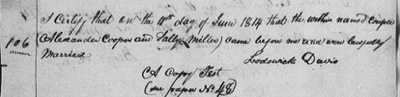 I Certify that on the 11th day of June 1814 that the within named couple
106 (Alexander Cooper and Sally Miller) came before me and were lawfully
Married
Lodowick Davis
A Copy Test
(on paper No 48)